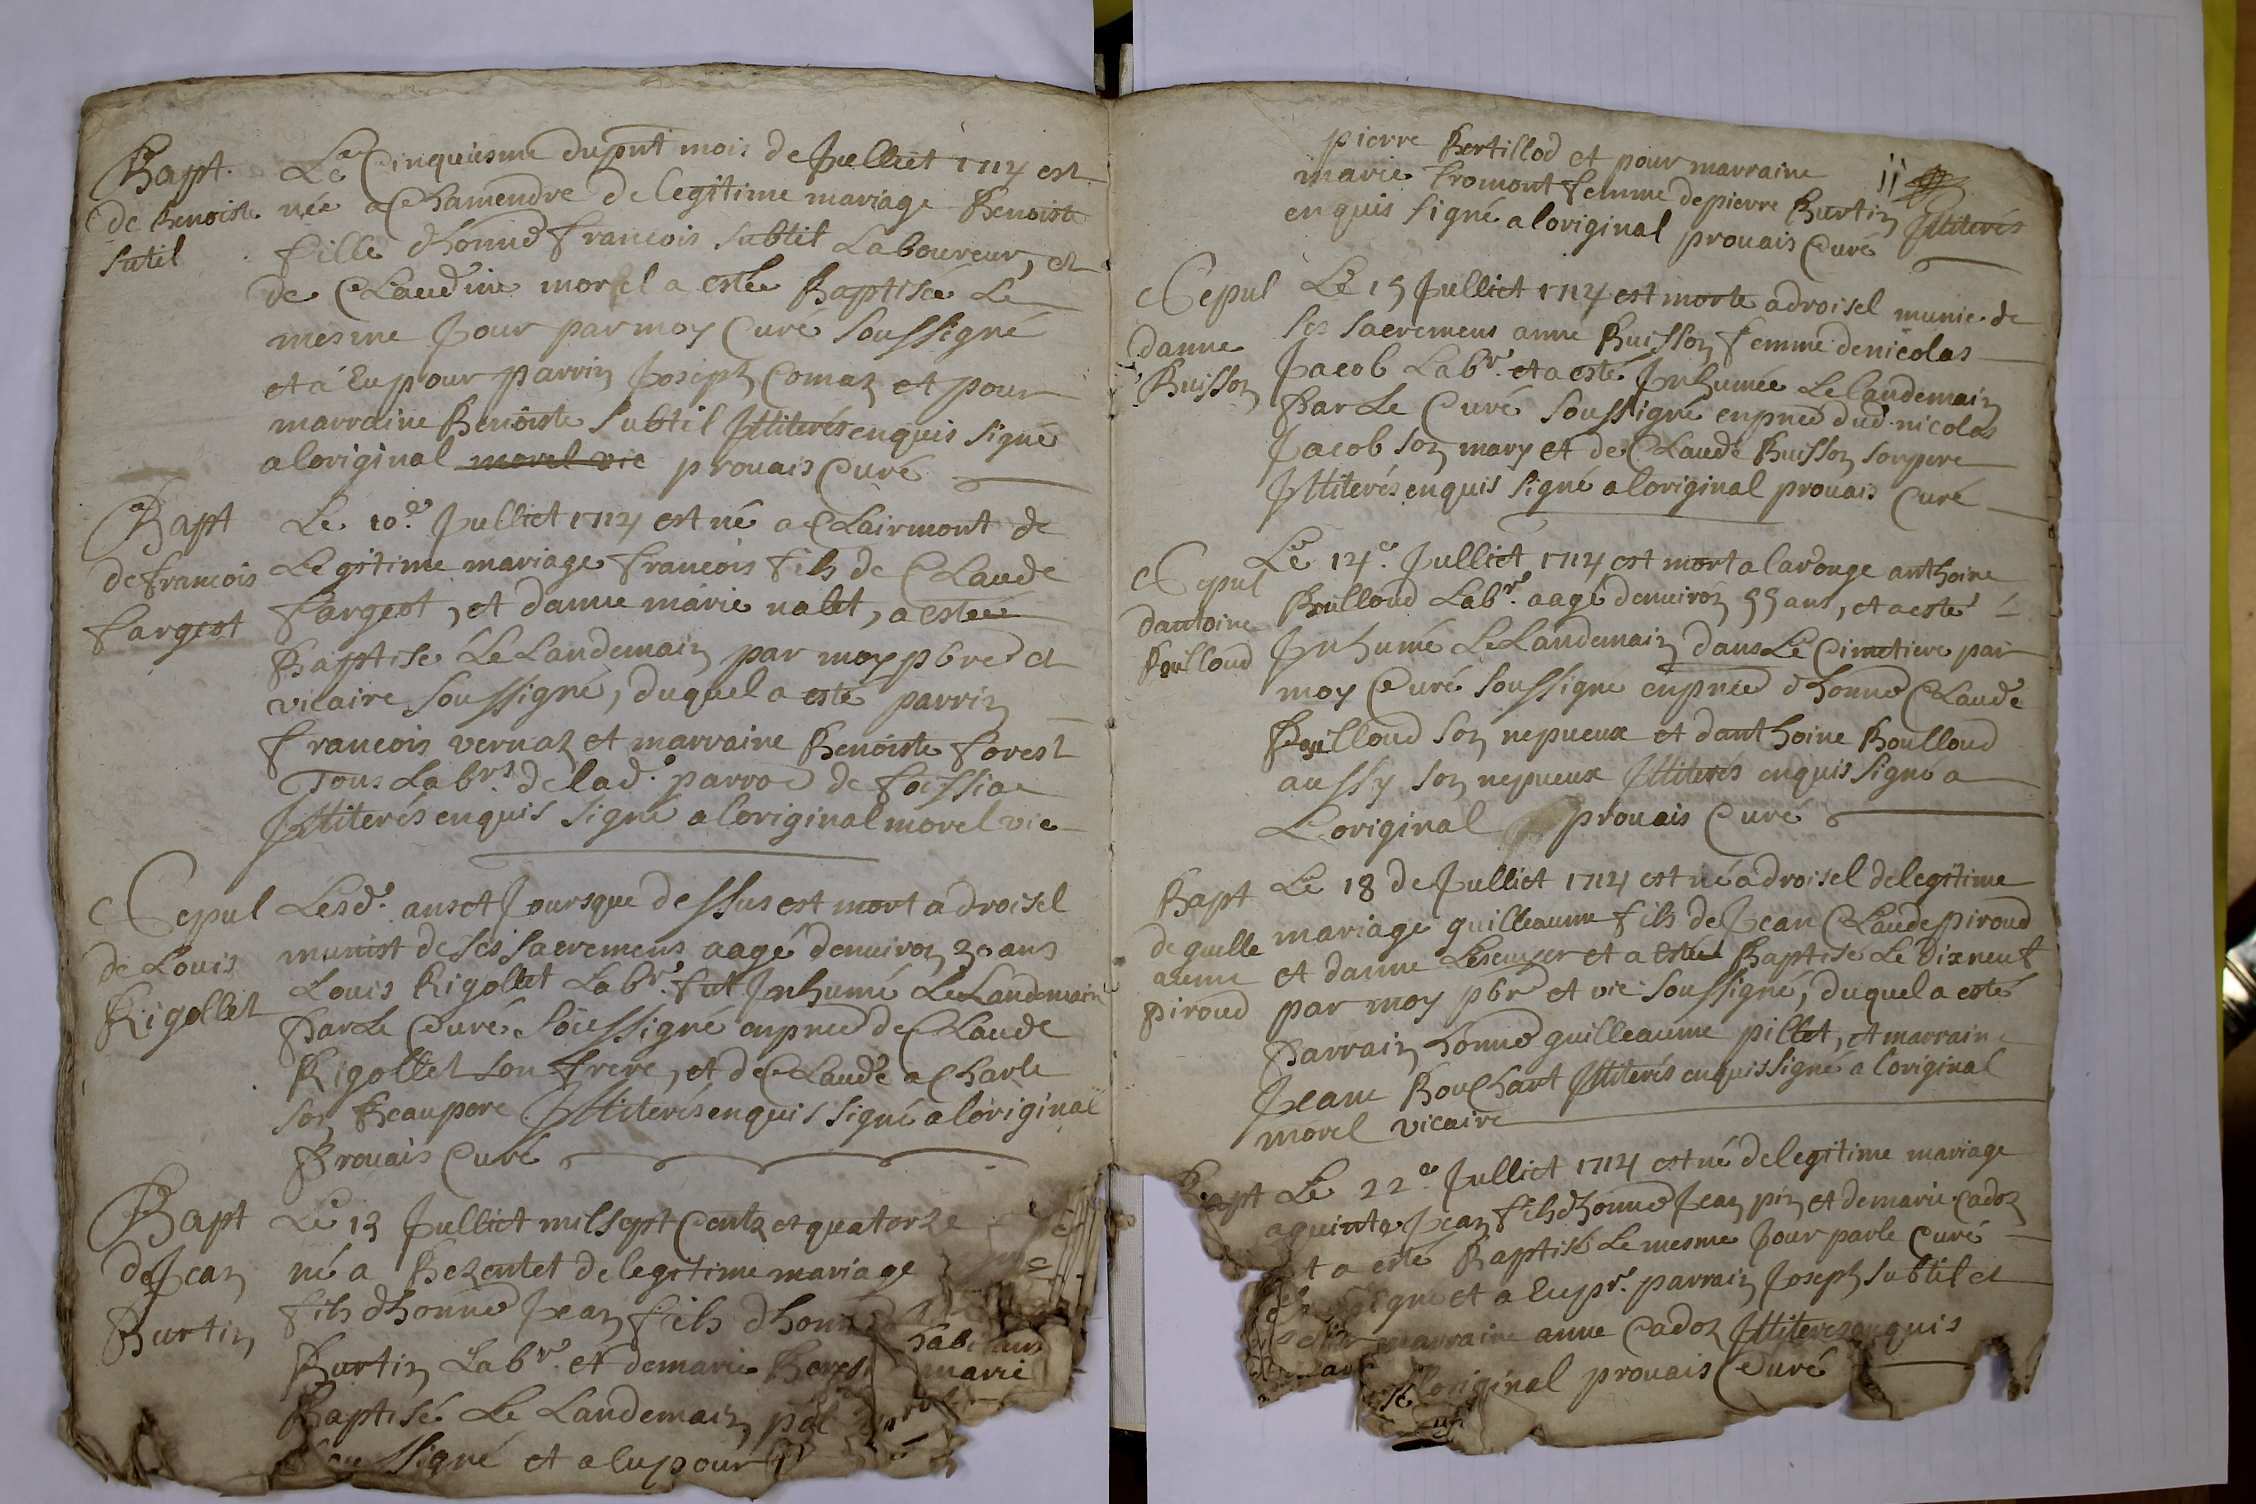 Bapt.
de Benoiste
Sutil
Le Cinquiesme du pnt mois de Juilliet 1714 est
née a Chamendre de legitime mariage Benoiste
fille d'honne francois Subtil Laboureur, et
de Claudine morel a estée Baptisée Le
mesme Jour par moy Curé Soussigné
et a Eu pour parrin Joseph Comaz et pour
marraine Benoiste Subtil Illiterés enquis signé
a loriginal morel vic prouais Curé
Bapt
de francois
fargeot
Le 10e Juilliet 1714 est né a Clairmont de
Legitime mariage francois fils de Claude
fargeot, et danne marie nalet, a estée
Baptisé Le Landemain par moy pbre et
vicaire Soussigné, duquel a esté parrin
francois vernaz et marraine Benoiste forest
Tous Labrs de lad. parroe de foissiac
Illiterés enquis signé a loriginal morel vic
Sepul
de Louis
Rigollet
Lesd. an et Jours que dessus est mort a droisel
munist de ses sacremens aagé denuiron 30 ans
Louis Rigollet Labr. fut Inhumé Le Landmain
Par Le Curé Soussigné en pnce de Claude
Rigollet son frere, et de Claude a Charle
son Beaupere Illiterés enquis signé a loriginal
Prouais Curé
Bapt
de Jean
Burtin
Le 13 Juilliet mil sept Centz et quatorze
né a Bezentet de legitime mariage
fils dhonne Jean fils dhonn
Burtin Labr. et de marie
Baptisé Le Landemain
habitans
marie
Soussigné et a Eu pour
pierre Bertillod et pour marraine
11
marie fromont femme de pierre Burtin Illiterés
enquis signé a loriginal prouais Curé
Sepul
danne
Buisson
Le 15 Juilliet 1714 est morte a droisel munie de
ses sacremens anne Buisson femme de nicolas
Jacob Labr. et a esté Inhumée Le landemain
Par Le Curé Soussigné en pnce dud. nicolas
Jacob son mary et de Claude Buisson son pere
Illiterés enquis signé a loriginal prouais Curé
Sepul
dantoine
Boulloud
Le 14e Juilliet 1714 est mort a la rouge anthoine
Boulloud Labr. aagé denuiron 55 ans, et a esté
Inhumé Le Landemain dans Le Cimetiere par
moy Curé Soussigne en pnce dhonne Claude
Boulloud son nepueux et danthoine Boulloud
aussy son nepueux Illiterés enquis signé a
Loriginal prouais Curé
Bapt
de guille
aume
piroud
Le 18 de Juilliet 1714 est né a droisel de legitime
mariage guilleaume fils de Jean Claude piroud
et danne Lescuyer et a estée Baptisé Le dixneuf
par moy pbre et vic Soussigné, duquel a esté
Parrain honne guilleaume pillet, et marraine
Jeane Bouchart Illiterés enquis signé a loriginal
morel vicaire
Bapt
Le 22e Juilliet 1714 est né de legitime mariage
a quinte Jean fils dhonne Jean pin et de marie Cadoz
et a esté Baptisé Le mesme Jour par le Curé
et a Eu pr. parrain Joseph Subtil et
marraine anne Cadoz Illiteres enquis
loriginal prouais Curé